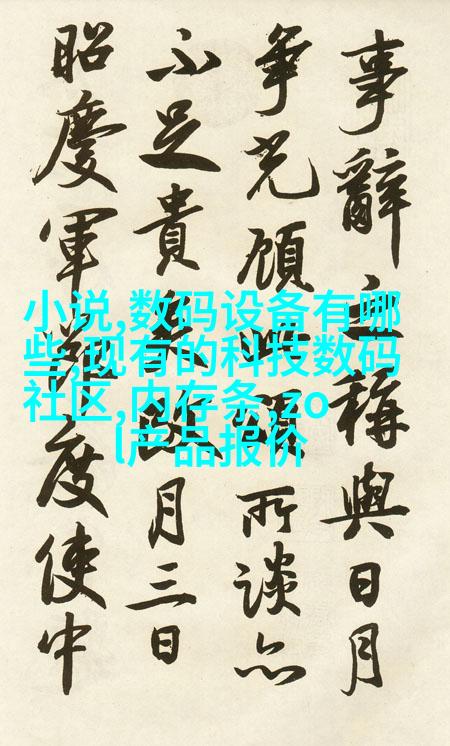 事辭之稱與日月
争光顧所談亦
不足貴月三日
昭慶軍節度使中
小说,数码设备有哪
些,现有的科技数码
社区,内存条,zo
l产品报价